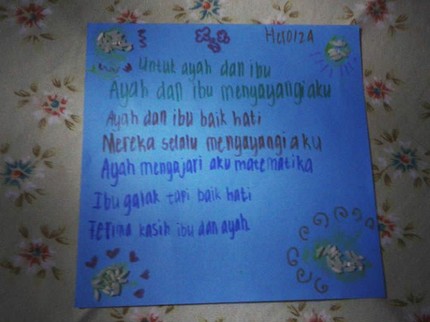 Untuk ayah dan ibu
Ayah dan ibu menyayangi aku
Ayah dan ibu baik hati
Mereka selalu mengayangi aku
Ayah mengajari aku matematika
Ibu galak tapi baik hati
Terima kasih ibu dan ayah